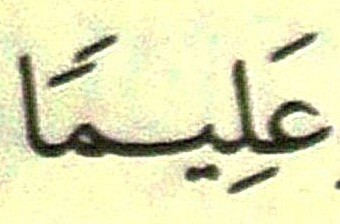 عَلِيمًا